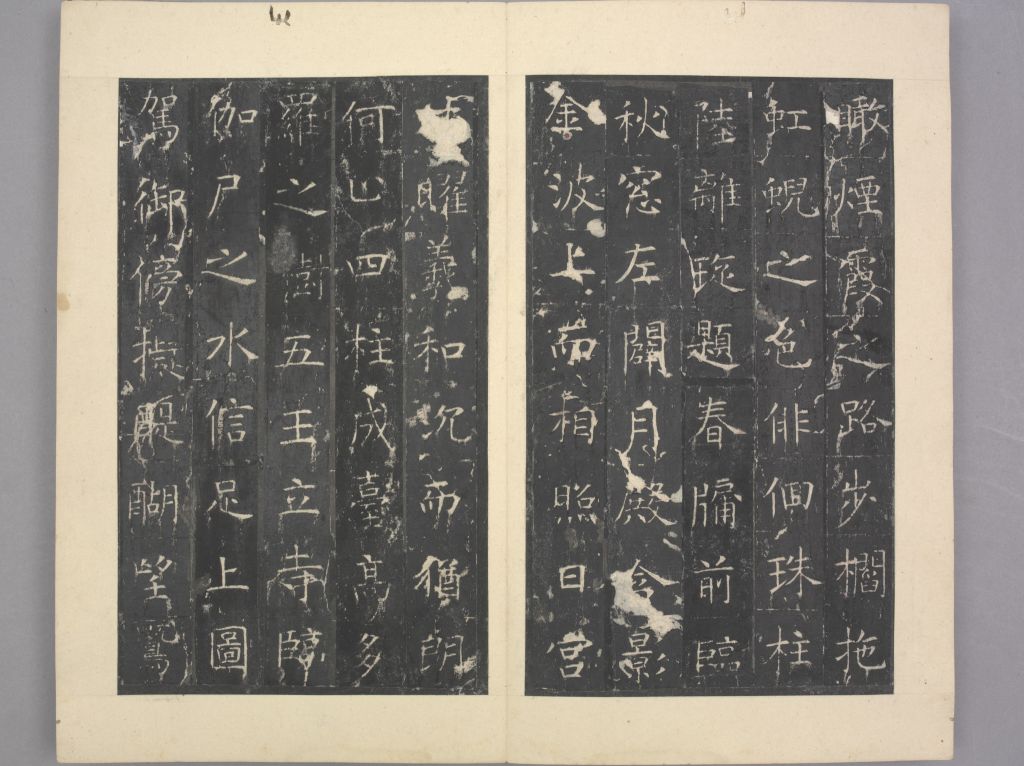 瞰煙霞之路步櫩拖
虹蜺之色俳佪珠柱
陸離琁題春牖前臨
秋窓左闢月殿含影
金波上而相照日宮
曜羲和沉而猶朗
何止四柱成臺高多
羅之樹五王立寺隣
伽尸之水信足上圖
駕御傍揔醍醐望鶱